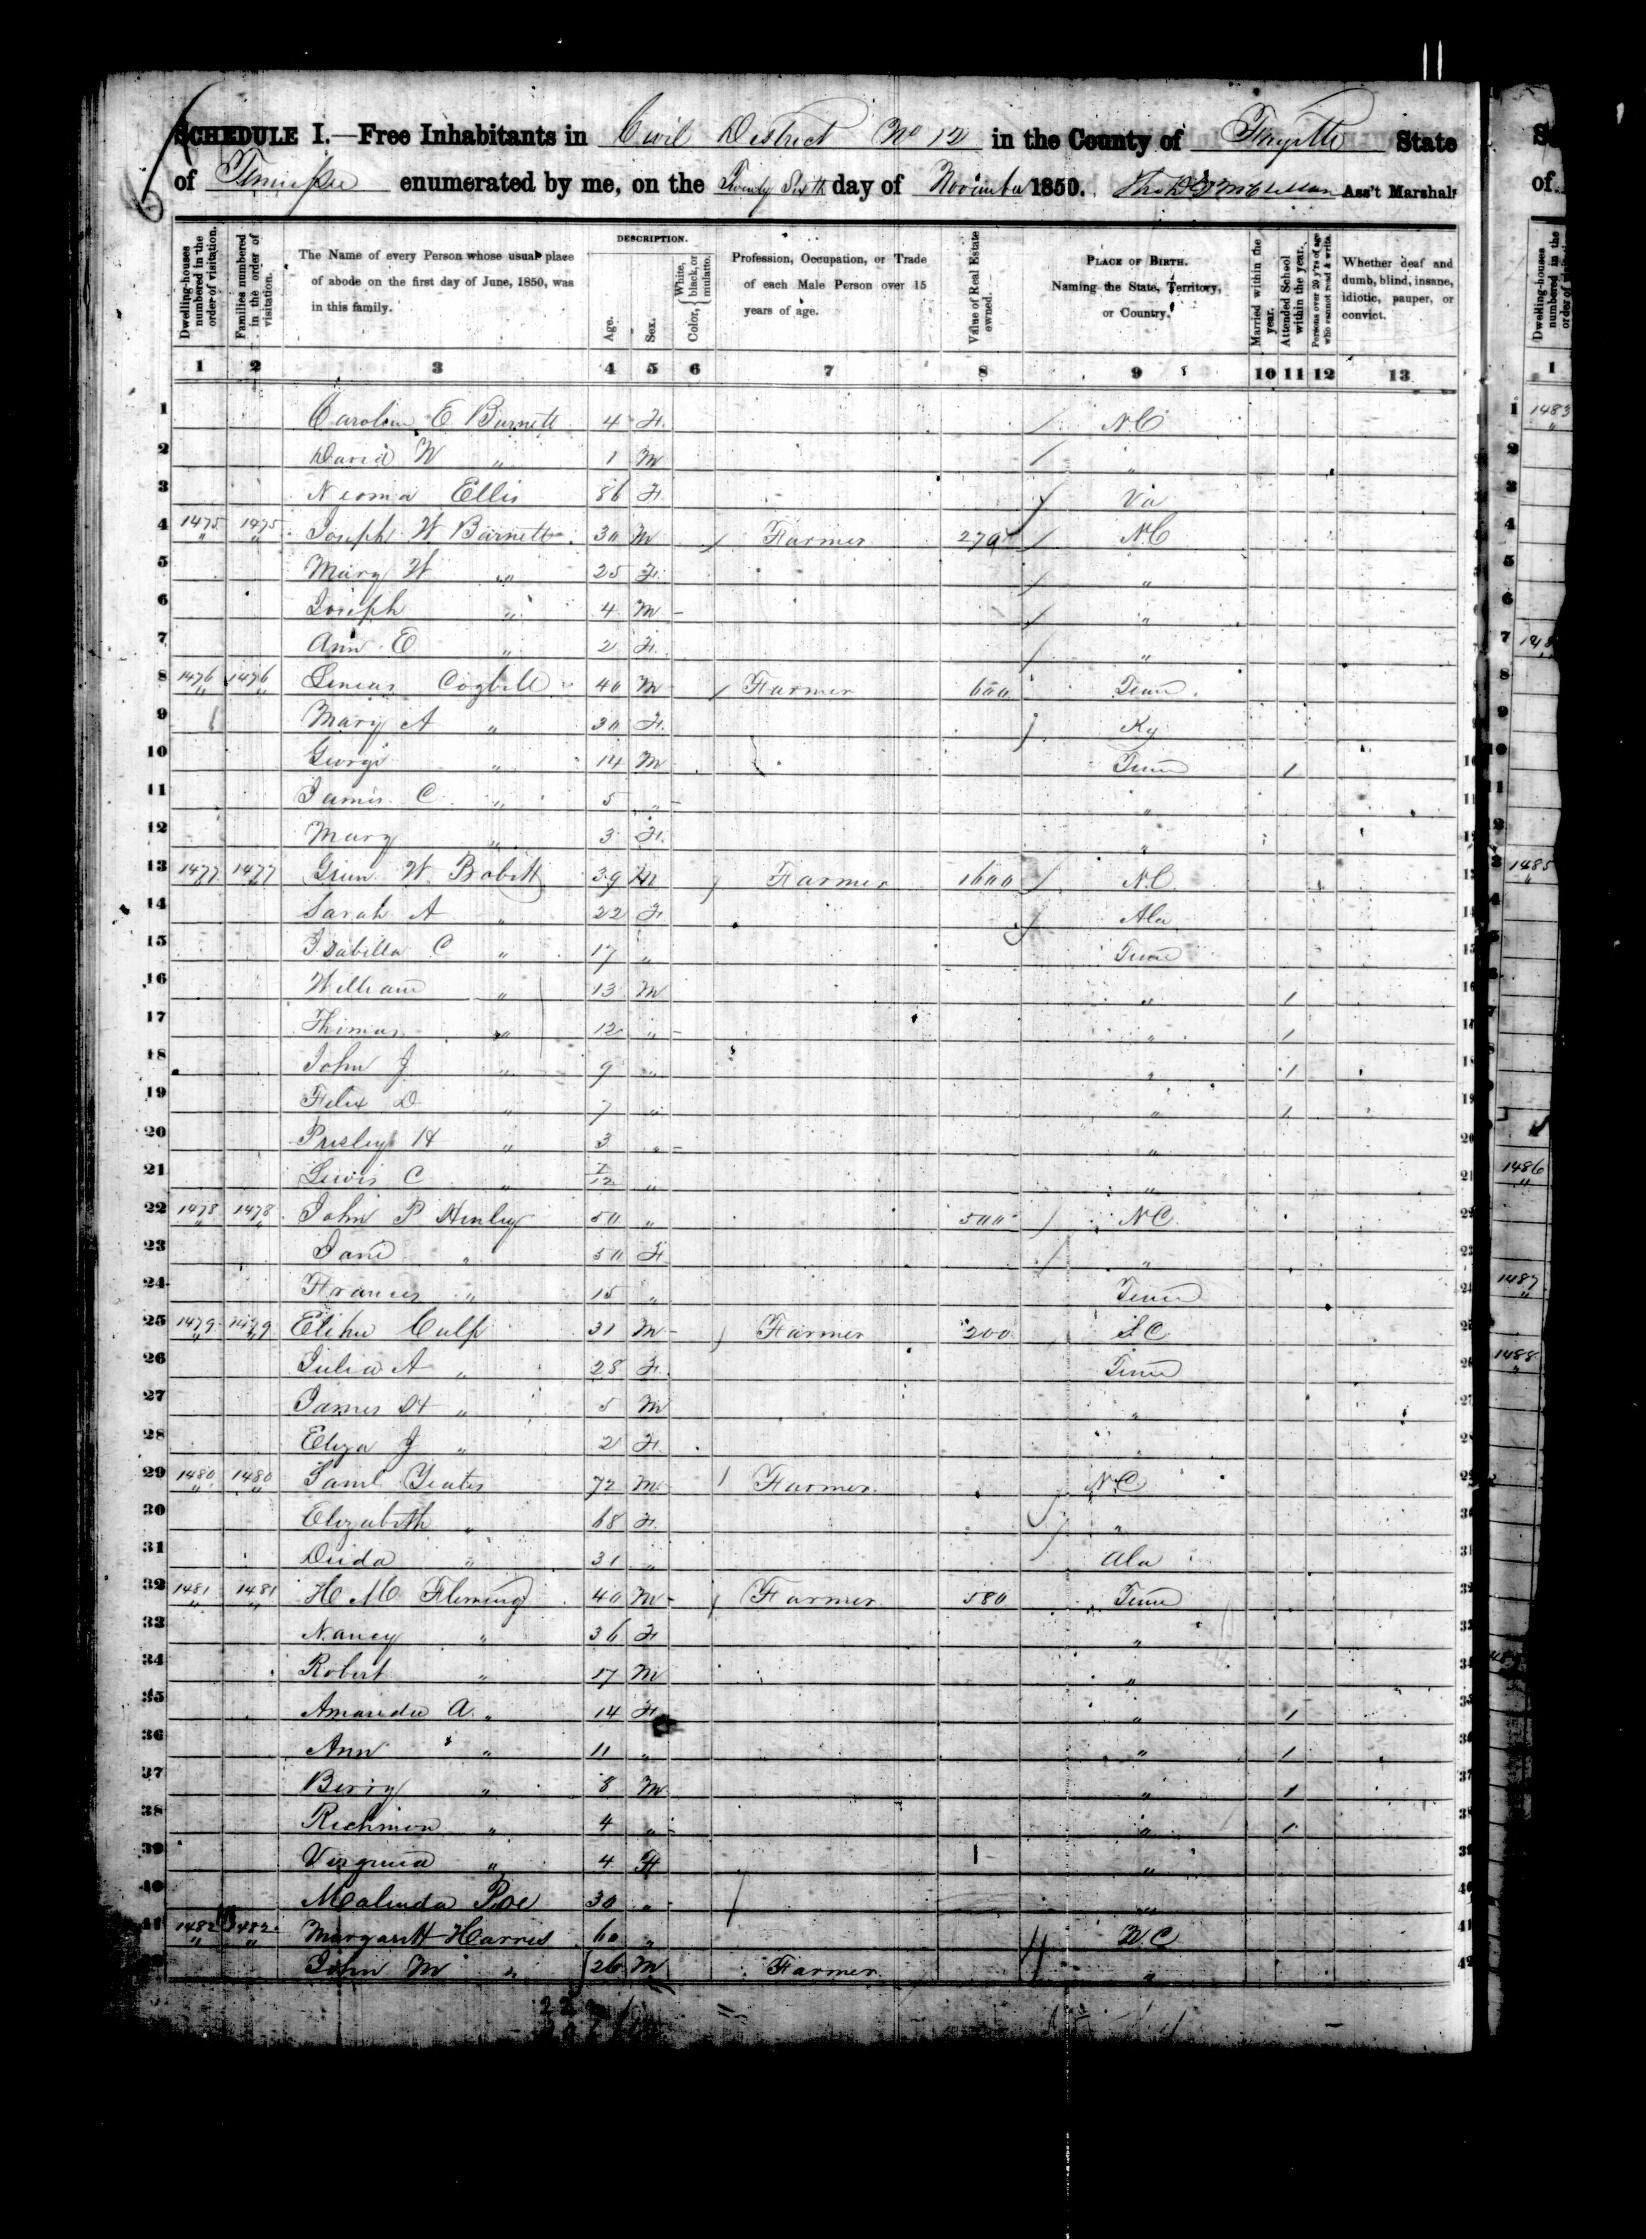 SCHEDULE I.—Free Inhabitants in Civil District No 12 in the County of Fayette State
of Tennessee enumerated by me, on the Twenty Sixth day of November 1850. Ass't Marshal
Dwelling-houses numbered in the order of visitation.
Families numbered in the order of visitation.
The Name of every Person whose usual place of abode on the first day of June, 1850, was in this family.
DESCRIPTION.
Age.
Sex.
Color, White, black, or mulatto.
Profession, Occupation, or Trade of each Male Person over 15 years of age.
Value of Real Estate owned.
PLACE OF BIRTH. Naming the State, Territory, or Country.
Married within the year.
Attended School within the year.
Persons over 20 y'rs of age who cannot read & write.
Whether deaf and dumb, blind, insane, idiotic, pauper, or convict.
1 2 3 4 5 6 7 8 9 10 11 12 13
1 Caroline E Burnett 4 F. / N.C
2 David W " 1 M / "
3 Neoma Ellis 86 F. / Va
4 1475 1475 Joseph W Barnett 30 M / Farmer 270 / N.C
5 Mary W " 25 F. / "
6 Joseph " 4 M / "
7 Ann E " 2 F. / "
8 1476 1476 Cogbill 40 M / Farmer 600 Tenn.
9 Mary A " 30 F. / Ky
10 George " 14 M Tenn 1
11 James C " 5 " "
12 Mary " 3 F. "
13 1477 1477 Green W Bobitt 39 M / Farmer 1600 / N.C.
14 Sarah A " 22 F. / Ala
15 Isabella C " 17 " Tenn
16 William " 13 M " 1
17 Thomas " 12 " " 1
18 John J " 9 " " 1
19 Felix D " 7 " " 1
20 Presley H " 3 " "
21 Lewis C " /12 " "
22 1478 1478 John P Henley 50 " 500 / N.C
23 Jane " 50 F. / "
24 Frances " 15 " Tenn
25 1479 1479 Elihu Culp 31 M / Farmer 200 S.C
26 Julia A " 28 F. Tenn
27 James H " 5 M "
28 Eliza J " 2 F. "
29 1480 1480 Saml Yeates 72 M / Farmer N.C
30 Elizabeth " 68 F. / "
31 " 31 " / Ala
32 1481 1481 H M Fleming 40 M / Farmer 580 Tenn
33 Nancy " 36 F "
34 Robert " 17 M "
35 A. " 14 F. " 1
36 Ann " 11 " " 1
37 Berry " 8 M " 1
38 Richmon " 4 " " 1
39 Virginia " 4 F "
40 Malinda Poe 30 " "
41 1482 1482 Margarett Harris 60 " / N.C
42 John M " 26 M Farmer / "
of
Dwelling-houses numbered in the
1
1 1483
1485
1486
1487
1488